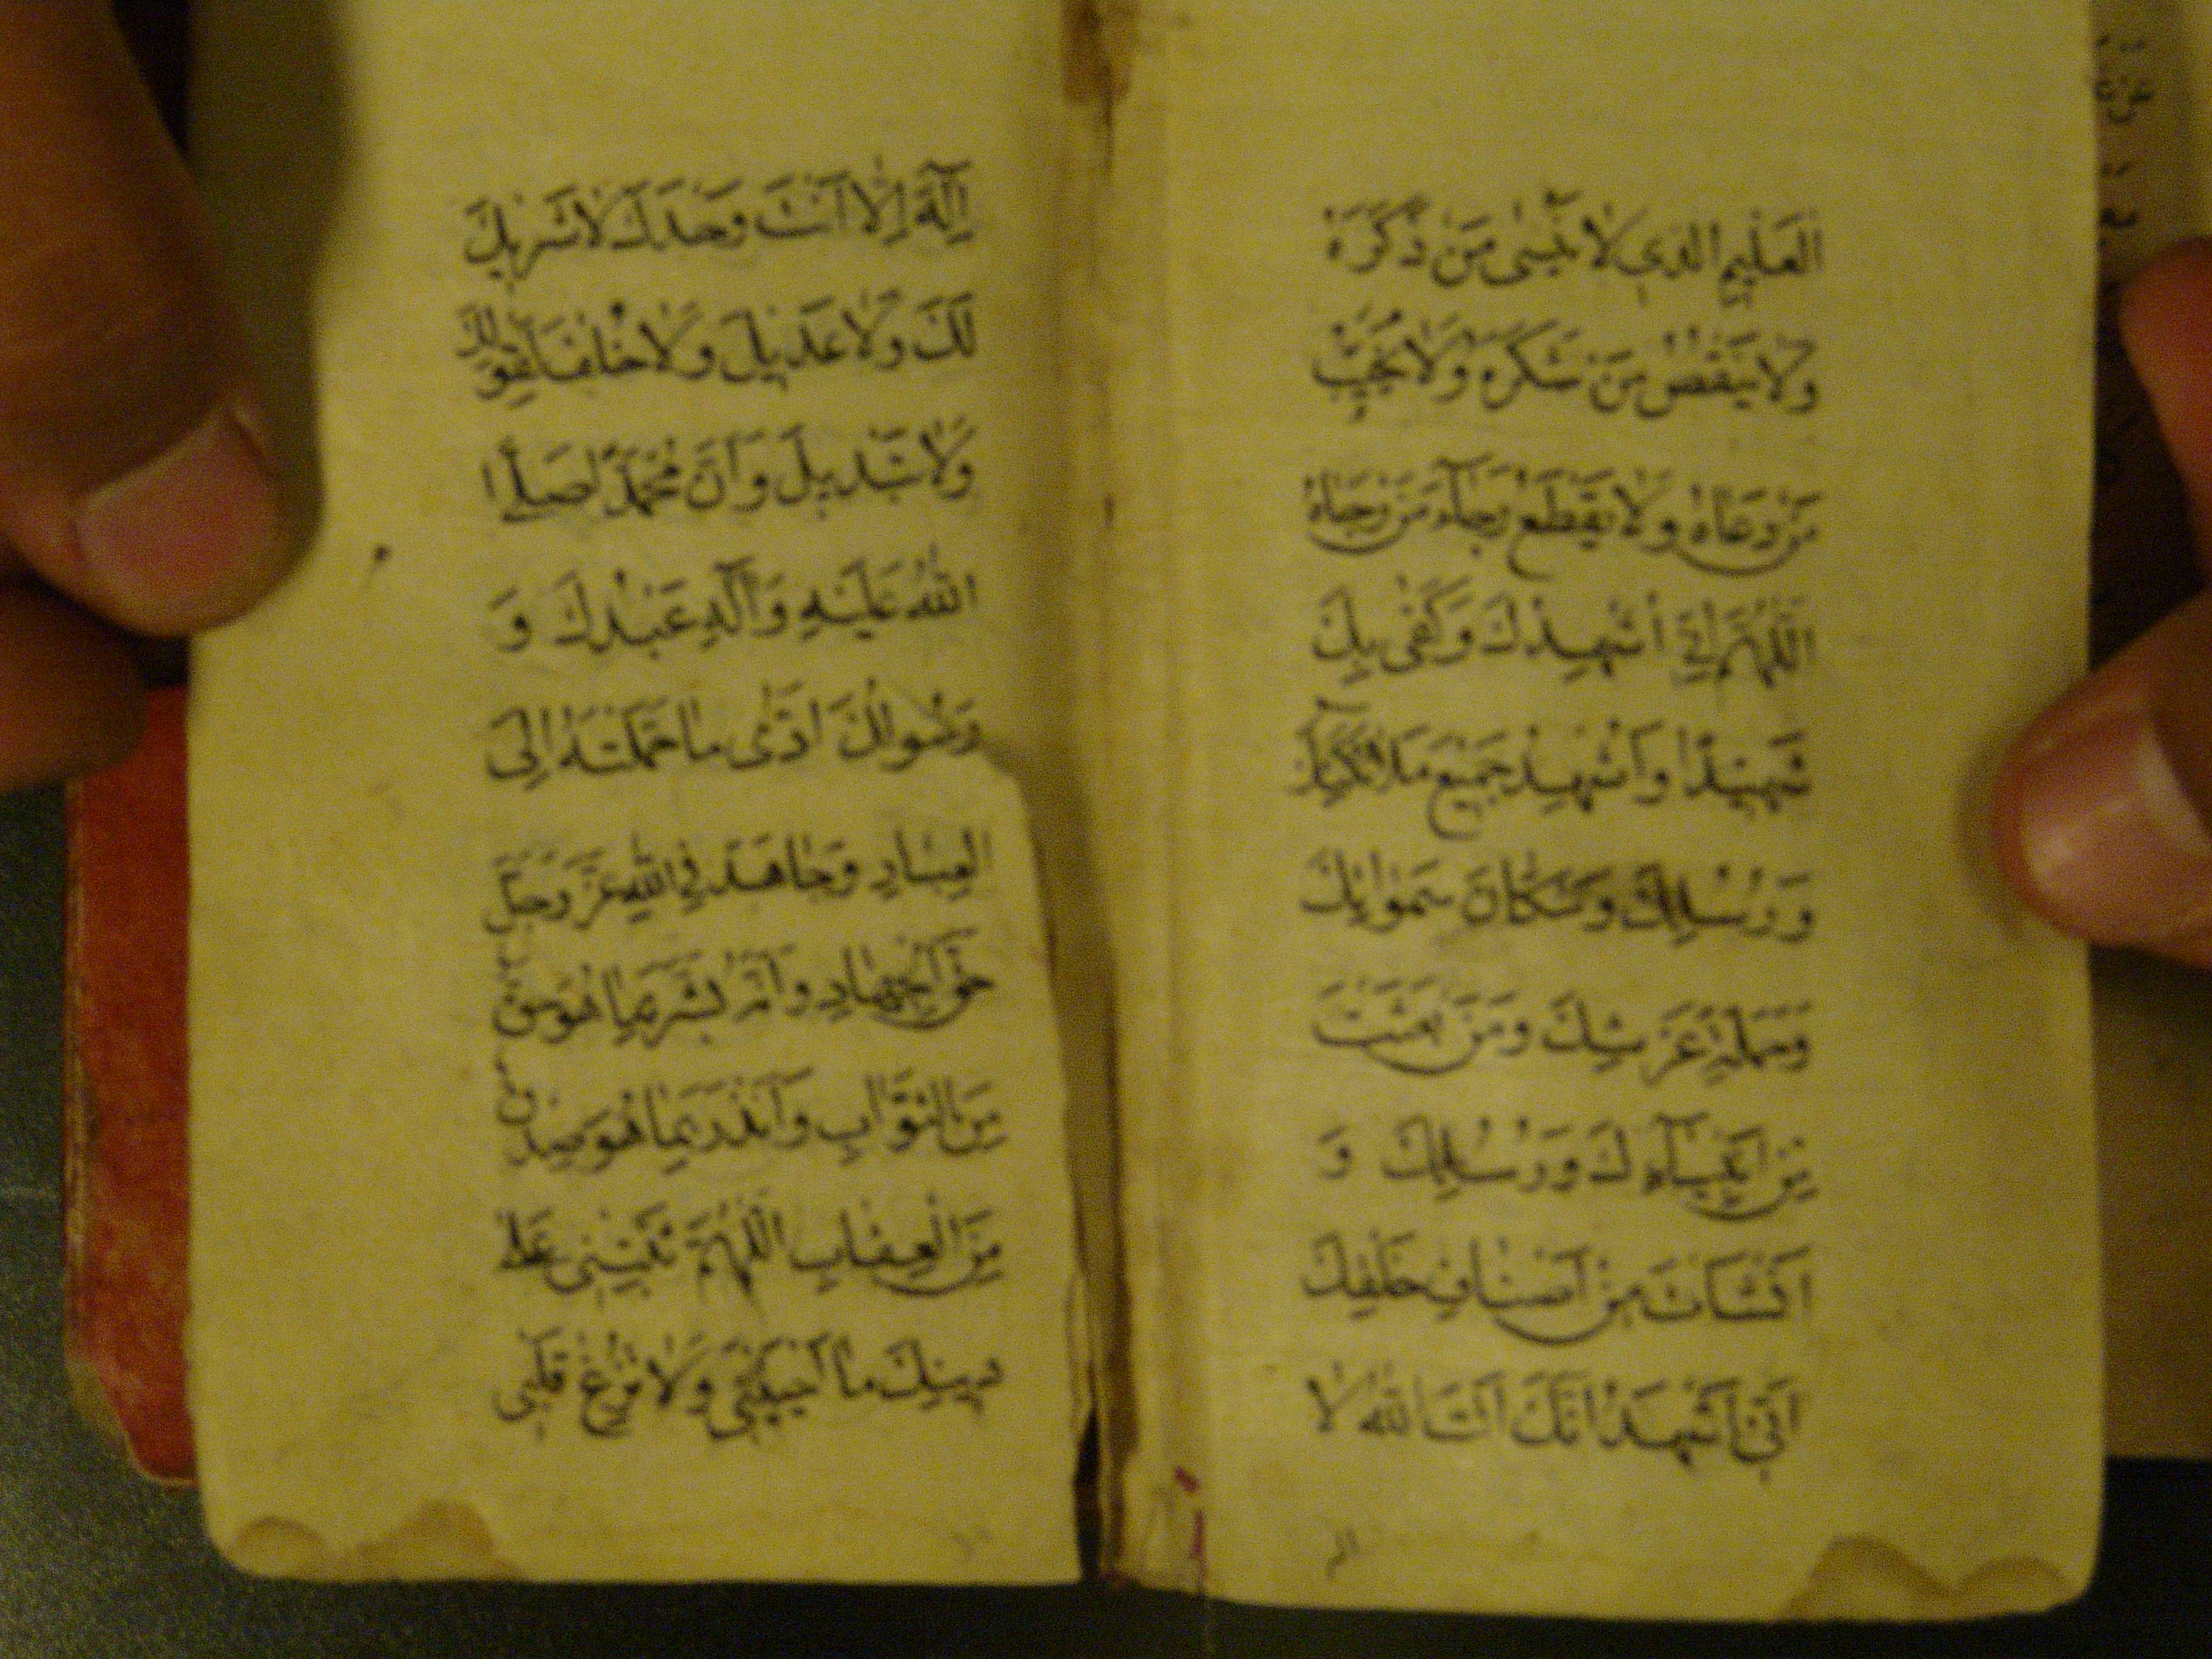 العَلِيمِ الَّذِي لَا يَنْسَى مَنْ ذَكَرَهُ
وَلَا يَنْقُصُ مَنْ شَكَرَهُ وَلَا يُخَيِّبُ
مَنْ دَعَاهُ وَلَا يَقْطَعُ رَجَاءَ مَنْ رَجَاهُ
اللّٰهُمَّ إِنِّي أُشْهِدُكَ وَكَفَى بِكَ
شَهِيدًا وَأُشْهِدُ جَمِيعَ مَلَائِكَتِكَ
وَرُسُلِكَ وَسُكَّانَ سَمَوَاتِكَ
وَحَمَلَةِ عَرْشِكَ وَمَنْ بَعَثْتَ
مِنْ أَنْبِيَآءِكَ وَرُسُلِكَ وَ
أَنْشَأْتَ مِنْ أَصْنَافِ خَلْقِكَ
أَنِّي أَشْهَدُ أَنَّكَ أَنْتَ اللهُ لَا
إِلَهَ إِلَّا أَنْتَ وَحْدَكَ لَا شَرِيكَ
لَكَ وَلَا عَدِيلَ وَلَا خُلْفَ لِقَوْلِكَ
وَلَا تَبْدِيلَ وَأَنَّ مُحَمَّدًا صَلَّى
اللهُ عَلَيْهِ وَآلِهِ عَبْدُكَ وَ
وَرَسُولُكَ أَدَّى مَا حَمَّلْتَهُ إِلَى
الْعِبَادِ وَجَاهَدَ فِي اللهِ عَزَّ وَجَلَّ
حَقَّ الْجِهَادِ وَأَنَّهُ بَشَّرَ بِمَا هُوَ حَقٌّ
مِنَ الثَّوَابِ وَأَنْذَرَ بِمَا هُوَ صِدْقٌ
مِنَ الْعِقَابِ اللّٰهُمَّ ثَبِّتْنِي عَلَى
دِينِكَ مَا أَحْيَيْتَنِي وَلَا تُزِغْ قَلْبِي